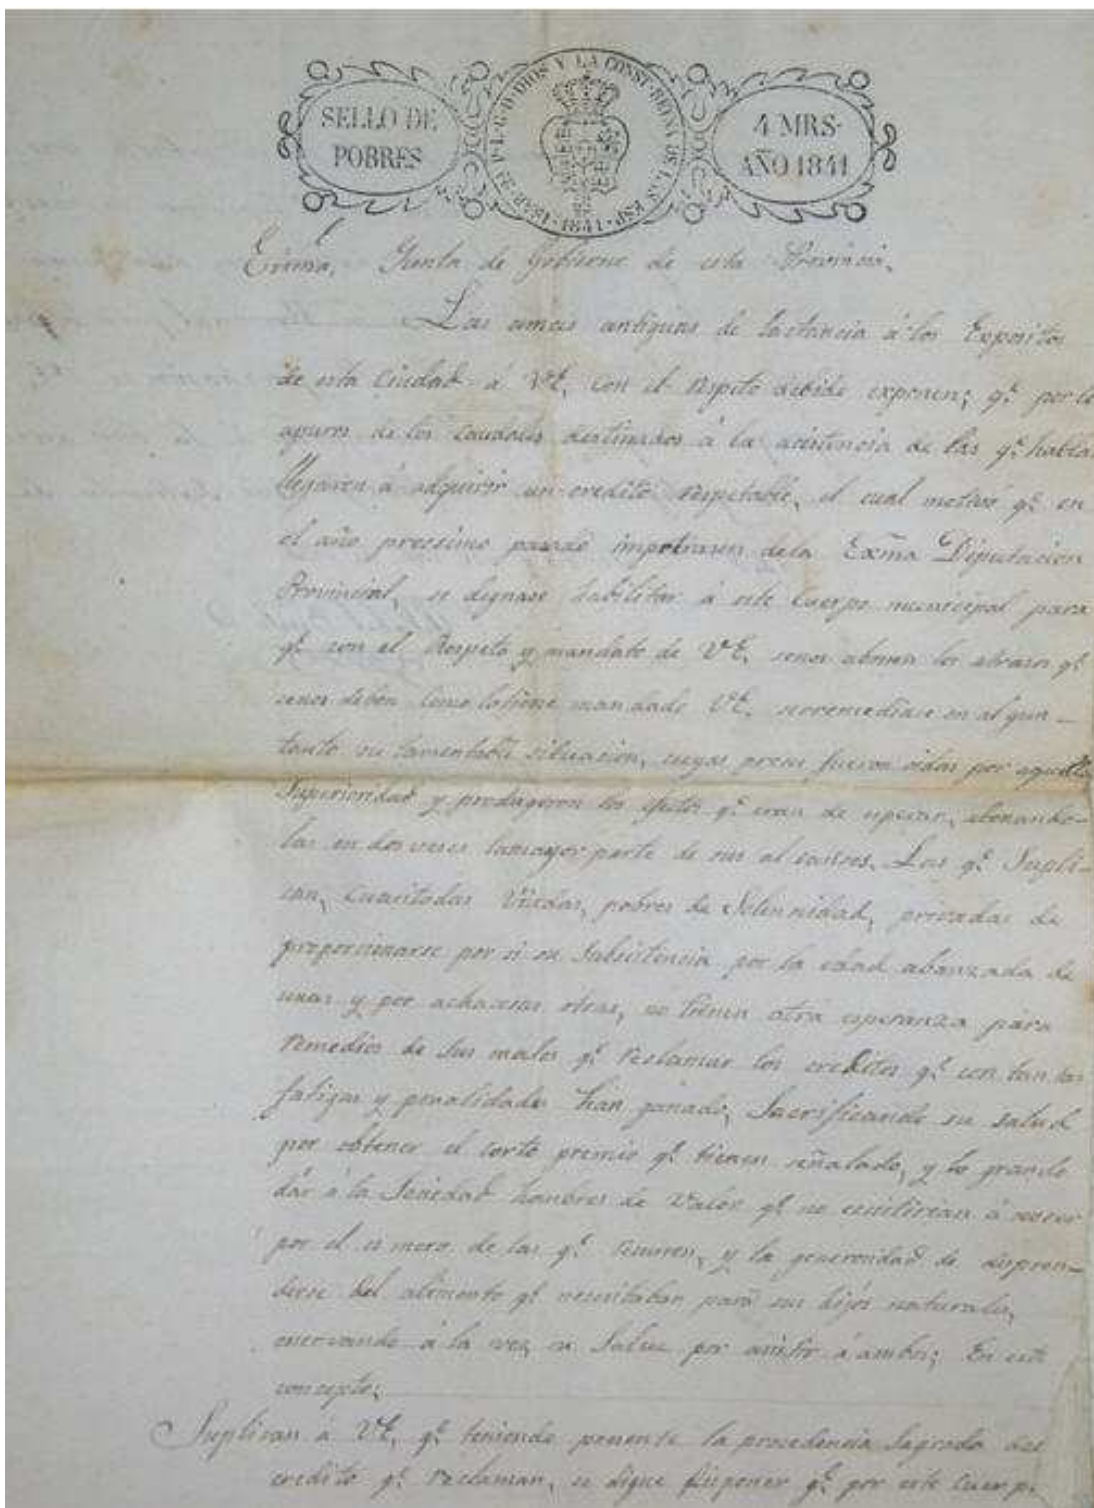 SELLO DE
POBRES
YSAB. 2ª P. L. G. D. DIOS Y LA CONST. REYNA DE LAS ESP. 1841
4 MRS.
AÑO 1841
Exma, Junta de Gobierno de esta Provincia,
Las amas antiguas de lactancia á los Expositos
de esta Ciudad á VE, con el respeto debido exponen; qᵉ por lo
apuros de los caudales destinados á la acistencia de las qᵉ hablan
llegaron á adquirir un credito respetable, el cual motivo qᵉ en
el año procsimo pasado impetrasen dela Exma Diputacion
Provincial, se dignase habilitar á este Cuerpo municipal para
qᵉ con el Respeto y mandato de VE, senos abonen los atrasos qᵉ
senos deben como lotiene mandado VE, seremediase en algun
tanto su lamentable situacion, cuyas preces fueron oidas por aquella
Superioridad y produgeron los efectos qᵉ eran de esperar, abonando-
las en dos veces lamayor parte de sus alcanses. Las qᵉ Supli-
can, Viudas, pobres de Solennidad, privadas de
proporcionarse por si su Subsistencia por la edad abanzada de
unas y por achacosas otras, no tienen otra esperanza para
remedios de sus males qᵉ reclamar los creditos qᵉ con tantas
fatigas y penalidades han ganado, Sacrificando su salud
por obtener el corto premio qᵉ tienen señalado, y lo grande
dar á la Sociedad hombres de Valor qᵉ no ecsistirian á no ser
por el esmero de las qᵉ recurren, y la generosidad de despren-
derse del alimento qᵉ necesitaban para sus hijos naturales,
enervando á la vez, su Salud por asistir á ambos; En este
concepto;
Suplican á VE, qᵉ teniendo presente la procedencia Sagrada del
credito qᵉ reclaman, se digne disponer qᵉ por este Cuerpo